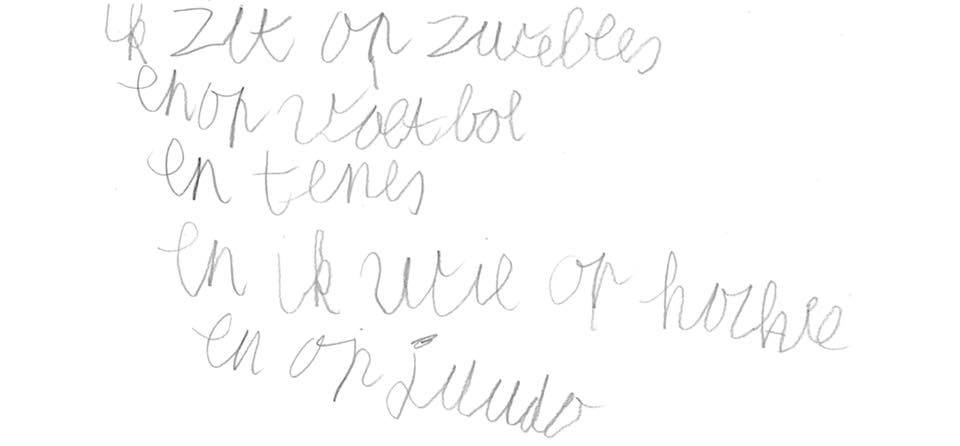 ik zit op zwebles
en op voetbol
en tenes
en ik wie op hockie
en op juudo